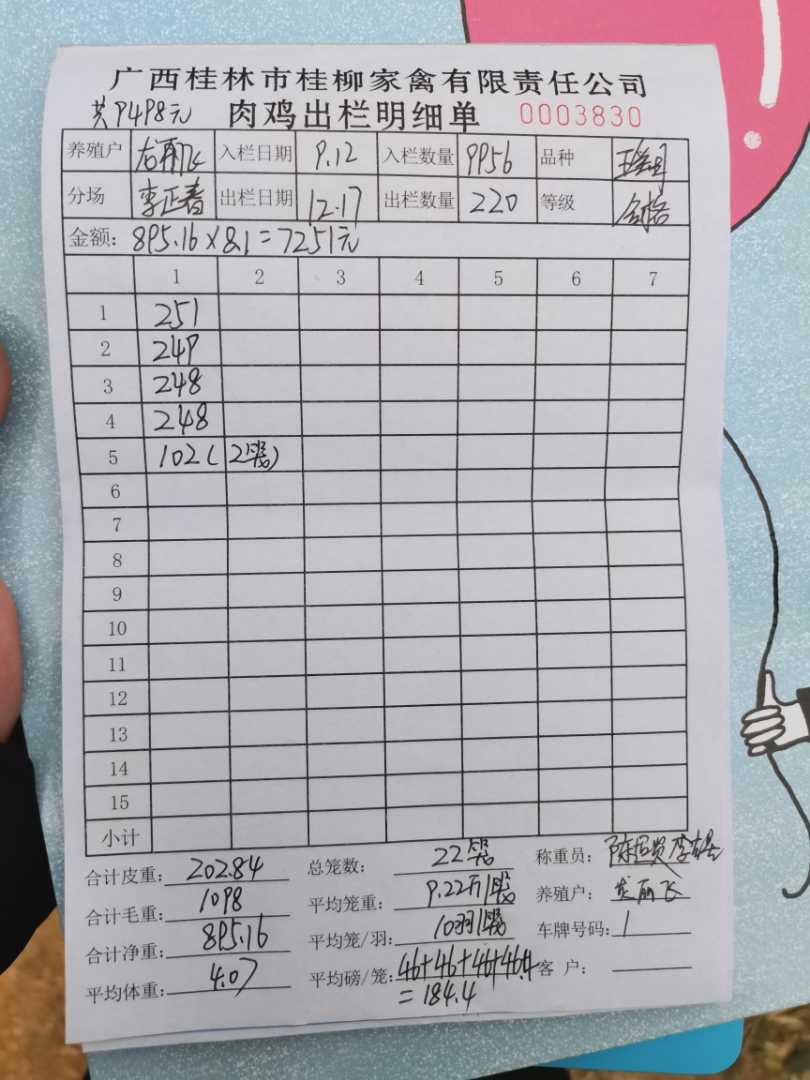 广西桂林市桂柳家禽有限责任公司
共9498元 肉鸡出栏明细单 0003830
养殖户 入栏日期 9.12 入栏数量 9956 品种
分场 李正春 出栏日期 12.17 出栏数量 220 等级 合格
金额: 895.16×8.1=7251元
1 2 3 4 5 6 7
1 251
2 249
3 248
4 248
5 102(2笼)
6
7
8
9
10
11
12
13
14
15
小计
合计皮重: 202.84 总笼数: 22笼 称重员:
合计毛重: 1098 平均笼重: 9.22斤/笼 养殖户:
合计净重: 895.16 平均笼/羽: 10羽/笼 车牌号码: /
平均体重: 4.07 平均磅/笼: 46+46+46+46.4 客 户:
=184.4